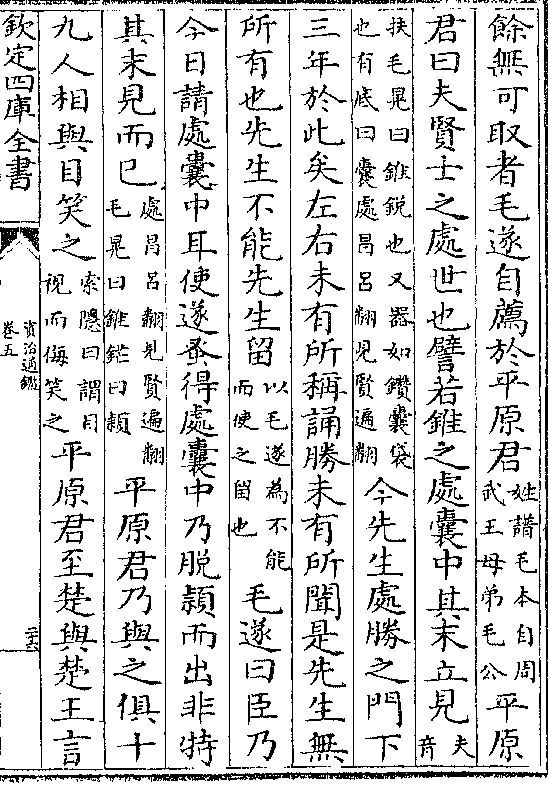 餘無可取者毛遂自薦於平原君姓譜毛本自周武王母弟毛公平原
君曰夫賢士之處世也譬若錐之處囊中其末立見夫音
扶毛晃曰錐銳也又器如鑽囊袋也有底曰囊處昌呂翻見賢遍翻今先生處勝之門下
三年於此矣左右未有所稱誦勝未有所聞是先生無
所有也先生不能先生留以毛遂為不能而使之留也毛遂曰臣乃
今日請處囊中耳使遂蚤得處囊中乃脫穎而出非特
其末見而已處昌呂翻見賢遍翻毛晃曰錐鋩曰穎平原君乃與之俱十
九人相與目笑之索隱曰謂目視而侮笑之平原君至楚與楚王言
欽定四庫全書
資治通鑑
卷五
二十六